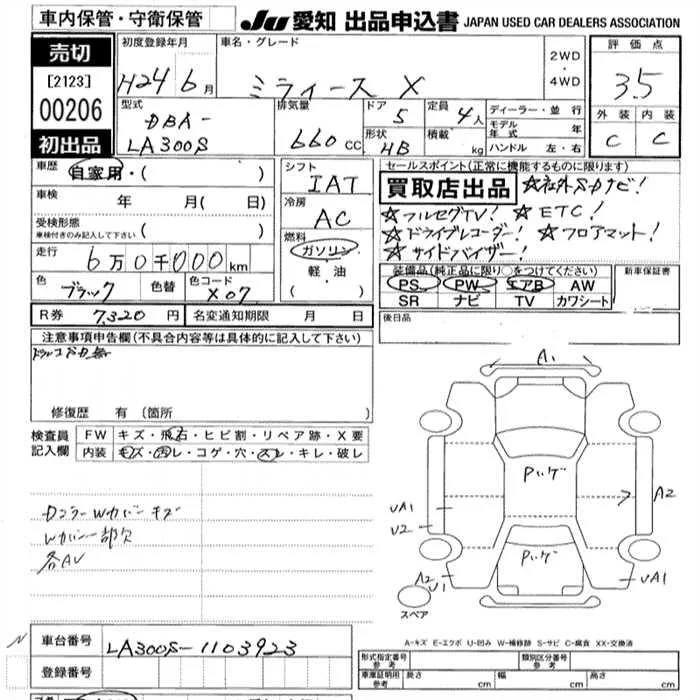 車内保管・守衛保管
JU 愛知 出品申込書 JAPAN USED CAR DEALERS ASSOCIATION
売切
[2123]
00206
初出品
初度登録年月
H24 6月
車名・グレード
ミライース X
2WD
・
4WD
評価点
3.5
外装 内装
C C
型式
DBA-
LA300S
排気量
660 CC
ドア
5
形状
HB
定員
4人
積載 kg
ディーラー・並行
モデル年式 年
ハンドル 左・右
車歴
自家用・( )
車検 年 月( 日)
受検形態
車検付きのみ記入して下さい ( )
走行
6万0千000km
色
ブラック
色替
色コード
X07
シフト
IAT
冷房
AC
燃料
ガソリン
軽・油
( )
セールスポイント(正常に機能するものに限ります)
買取店出品
☆社外ナビ!
☆フルセグTV! ☆ETC!
☆ドライブレコーダー! ☆フロアマット!
☆サイドバイザー!
装備品(純正品に限り○をつけてください)
PS PW エアB AW
SR ナビ TV カワシート
新車保証書
後日品
R券 7,320円 名変通知期限 月 日
注意事項申告欄(不具合内容等は具体的に記入して下さい)
修復歴 有 (箇所 )
検査員
記入欄
FW キズ・飛石・ヒビ割・リペア跡・X要
内装 キズ・汚レ・コゲ・穴・スレ・キレ・破レ
Dミラー Wカバー キズ
Wカバー 一部欠
各AU
A1
Pいゲ
Pいゲ
A2
UA1
U2
A2
U1
UA1
スペア
A-キズ E-エクボ U-凹み W-補修跡 S-サビ C-腐食 XX-交換済
車台番号 LA300S-1103923
登録番号
形式指定番号
参考
類別区分番号
参考
車庫証明用
参考
長さ cm 幅 cm 高さ cm